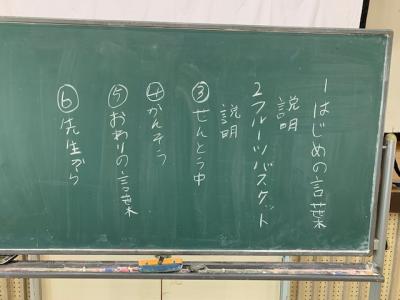 1 はじめの言葉
説明
2 フルーツバスケット
説明
③ せんとう中
④ かんそう
⑤ おわりの言葉
⑥ 先生から